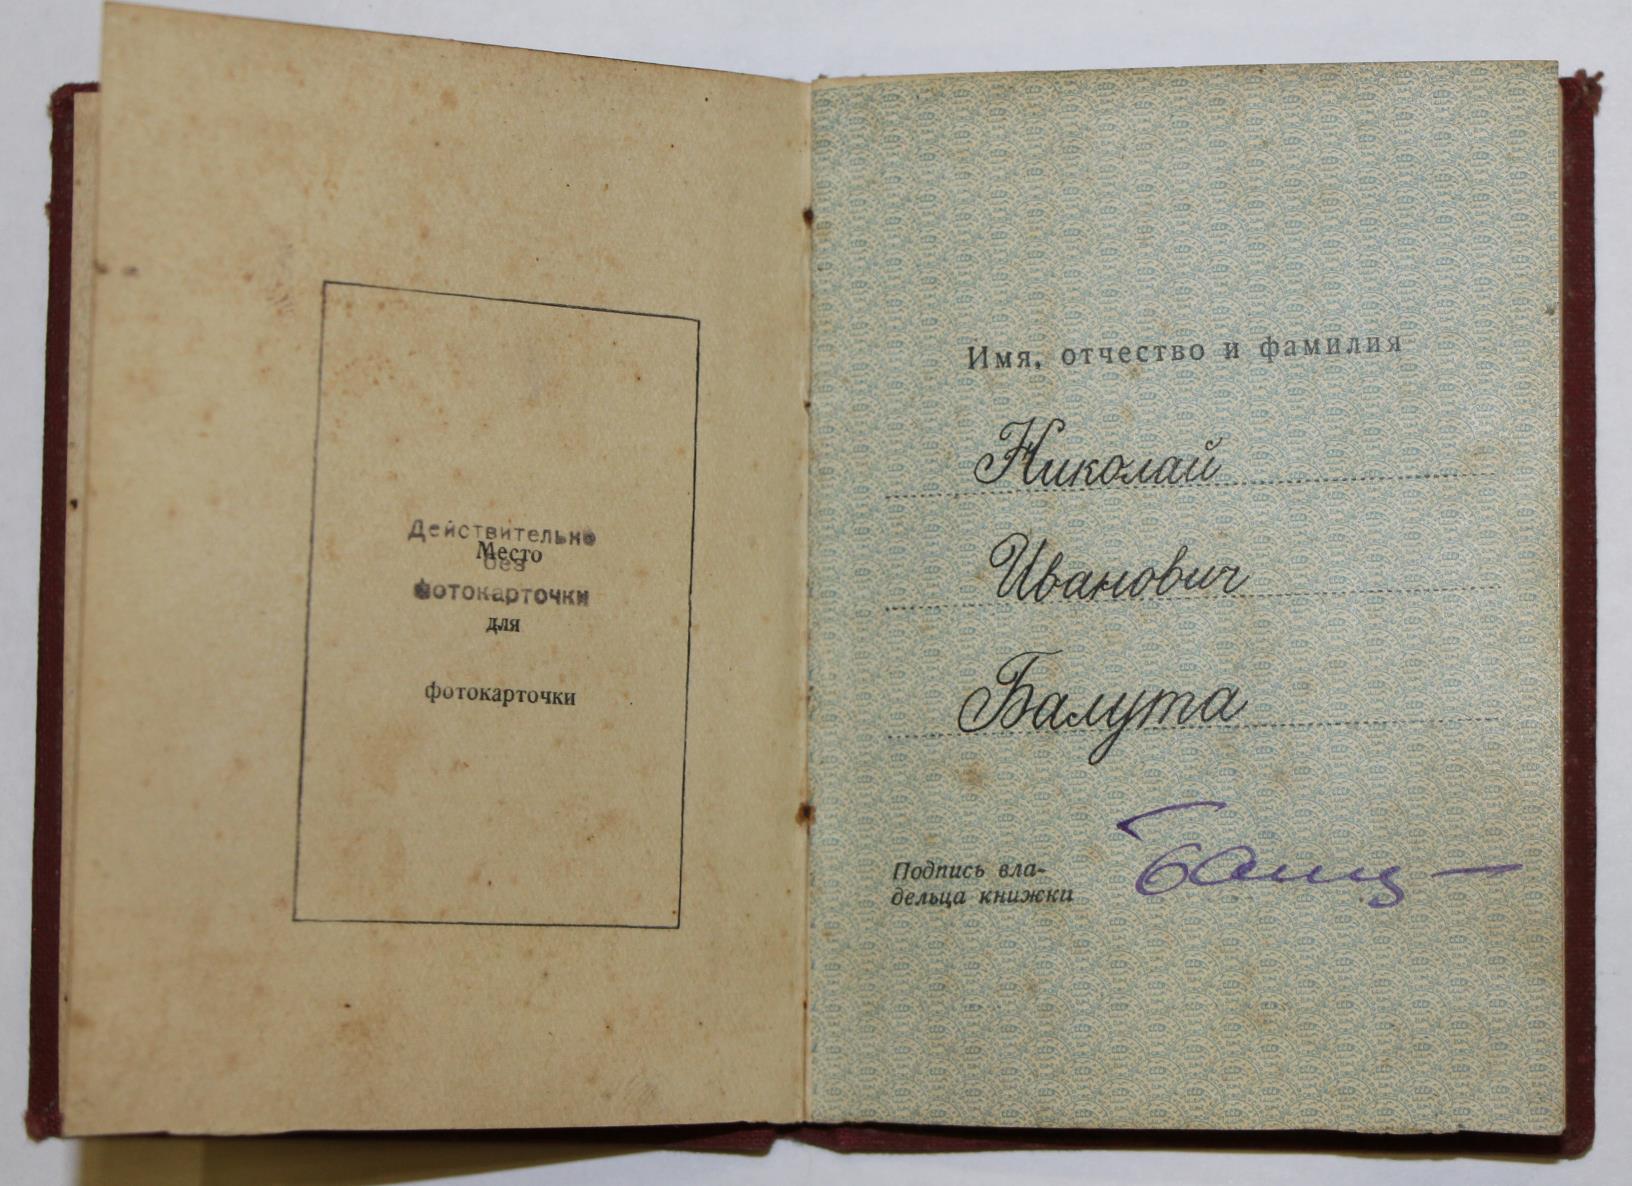 Действительно
Место
без
фотокарточки
для
фотокарточки
Имя, отчество и фамилия
Николай
Иванович
Балута
Подпись вла-
дельца книжки